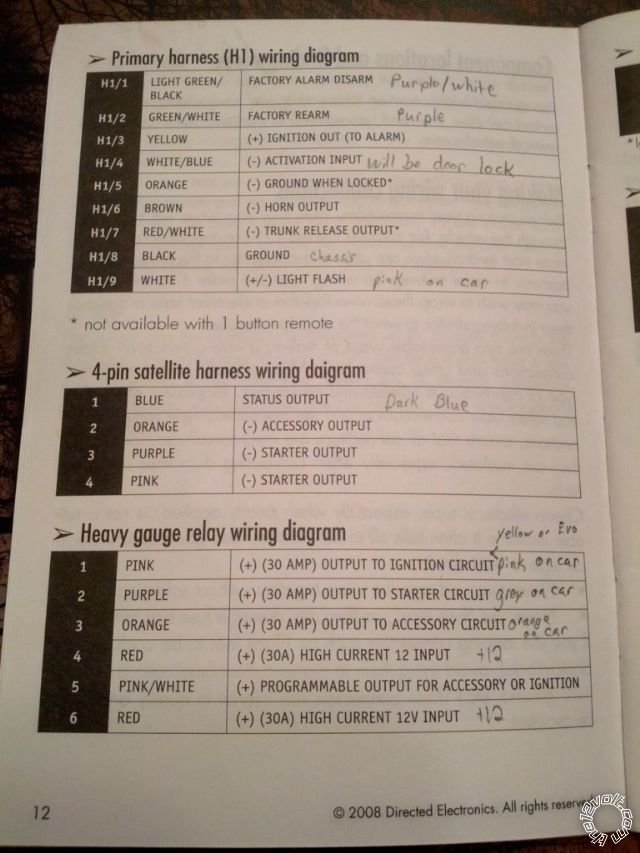 ➢ Primary harness (H1) wiring diagram
H1/1 LIGHT GREEN/ BLACK FACTORY ALARM DISARM Purple/white
H1/2 GREEN/WHITE FACTORY REARM Purple
H1/3 YELLOW (+) IGNITION OUT (TO ALARM)
H1/4 WHITE/BLUE (-) ACTIVATION INPUT will be door lock
H1/5 ORANGE (-) GROUND WHEN LOCKED*
H1/6 BROWN (-) HORN OUTPUT
H1/7 RED/WHITE (-) TRUNK RELEASE OUTPUT*
H1/8 BLACK GROUND chassis
H1/9 WHITE (+/-) LIGHT FLASH pink on car
* not available with 1 button remote
➢ 4-pin satellite harness wiring daigram
1 BLUE STATUS OUTPUT Dark Blue
2 ORANGE (-) ACCESSORY OUTPUT
3 PURPLE (-) STARTER OUTPUT
4 PINK (-) STARTER OUTPUT
➢ Heavy gauge relay wiring diagram
yellow or Evo
1 PINK (+) (30 AMP) OUTPUT TO IGNITION CIRCUIT pink on car
2 PURPLE (+) (30 AMP) OUTPUT TO STARTER CIRCUIT grey on car
3 ORANGE (+) (30 AMP) OUTPUT TO ACCESSORY CIRCUIT orange on car
4 RED (+) (30A) HIGH CURRENT 12 INPUT +12
5 PINK/WHITE (+) PROGRAMMABLE OUTPUT FOR ACCESSORY OR IGNITION
6 RED (+) (30A) HIGH CURRENT 12V INPUT +12
12 © 2008 Directed Electronics. All rights reserved
the12volt.com